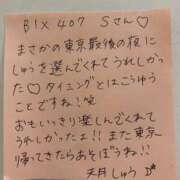 BIX 407 Sさん♡
まさかの東京最後の夜に
しゅうを選んでくれてうれしかっ
た♡ タイミングとはこうゆう
ことですね!笑
おもいっきり楽しんでくれて
うれしかったよ!!また東京
帰ってきたらあそぼうね!!
天月しゅう